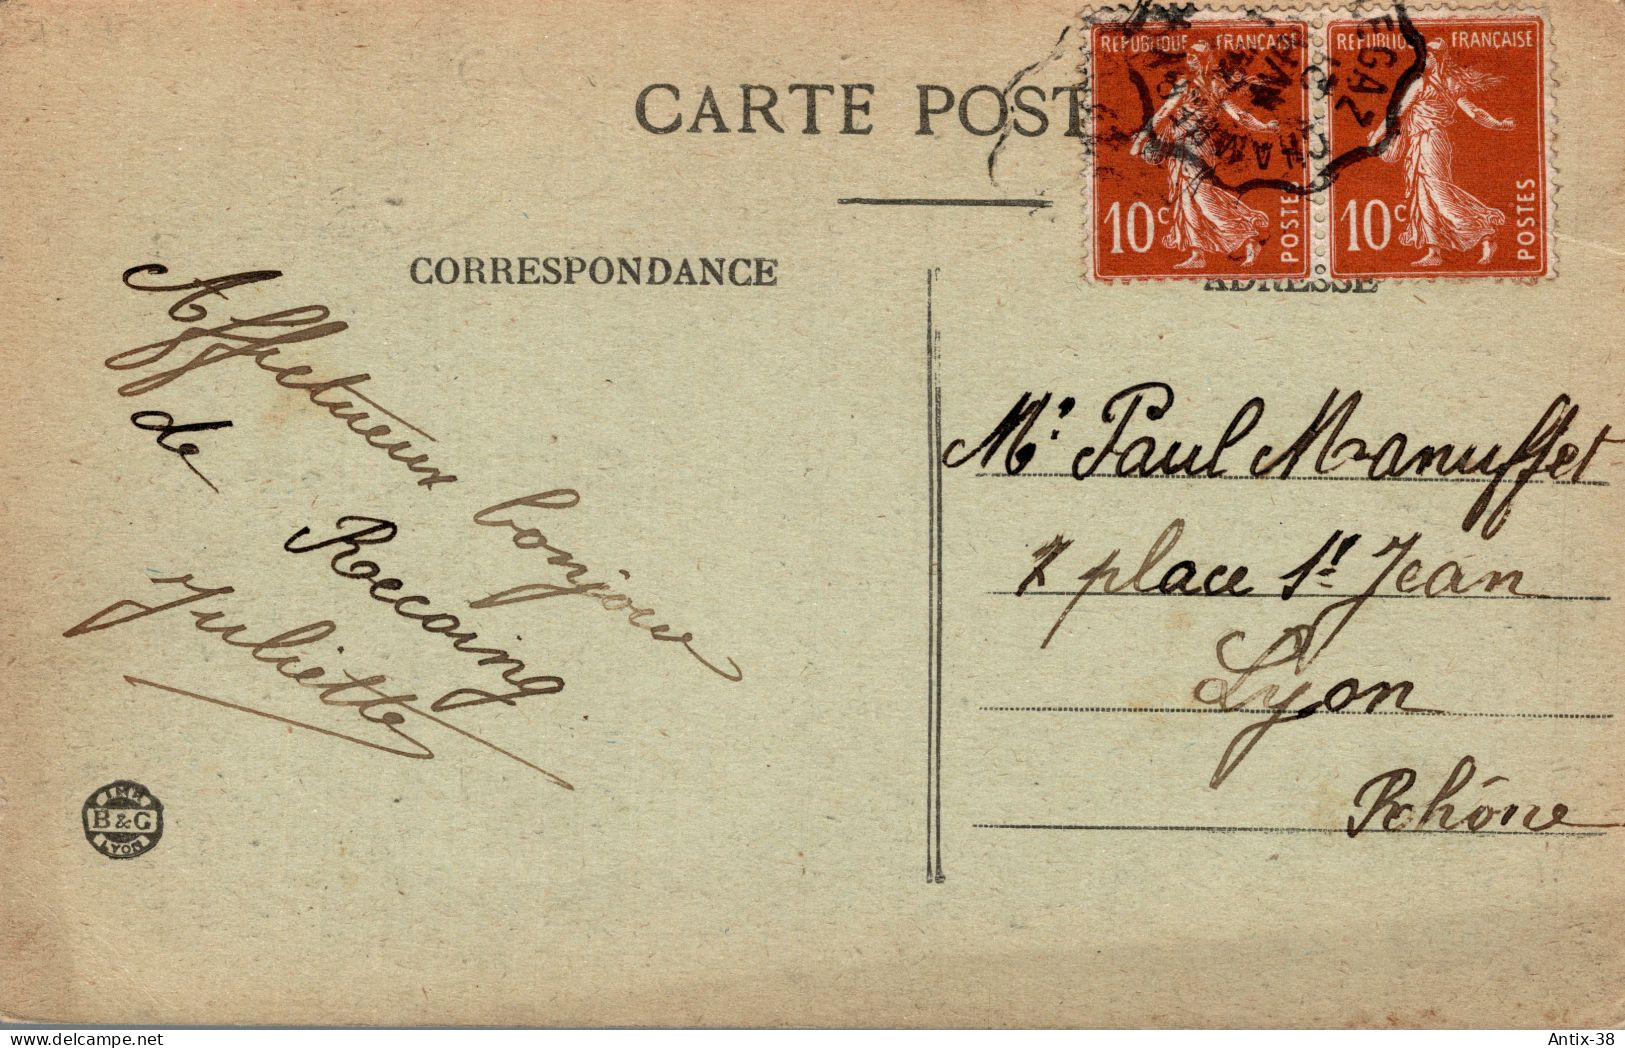 CARTE POST
RÉPUBLIQUE FRANÇAISE
10c
POSTES
RÉPUBLIQUE FRANÇAISE
10c
POSTES
CORRESPONDANCE
ADRESSE
Affectueux bonjour
de Recoing
Juliette
Mr Paul Manuffet
7 place St Jean
Lyon
Rhône
IMP.
B & G
LYON
Antix-38